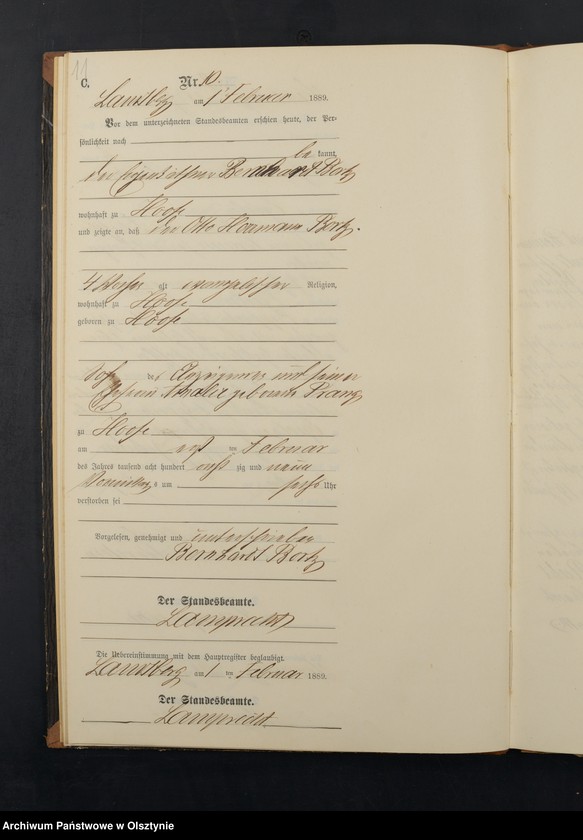 11
C.
Nr. 10.
Landsberg am 1 Februar 1889.
Vor dem unterzeichneten Standesbeamten erschien heute, der Per-
sönlichkeit nach
be kannt,
der Eigenkäthner Bernhardt Bortz
wohnhaft zu Hoofe
und zeigte an, daß der Otto Hermann Bortz.
4 Wochen alt evangelischer Religion,
wohnhaft zu Hoofe
geboren zu Hoofe
Sohn des Anzeigenden und seiner
Ehefrau geborene Prang
zu Hoofe
am ersten ten Februar
des Jahres tausend acht hundert acht zig und neun
Vormittags um sechs Uhr
verstorben sei
Vorgelesen, genehmigt und unterschrieben
Bernhardt Bortz
Der Standesbeamte.
Lamprecht
Die Uebereinstimmung mit dem Hauptregister beglaubigt.
Landsberg am 1 ten Februar 1889.
Der Standesbeamte.
Lamprecht
Archiwum Państwowe w Olsztynie